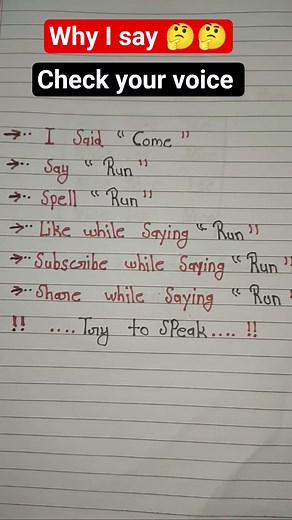 Why I say 🤔🤔
Check your voice
→.. I Said "Come"
→.. Say "Run"
→.. Spell "Run"
→.. Like while Saying "Run"
→.. Subscribe while Saying "Run"
→.. Share while Saying "Run"
!! ....Try to SPeak.... !!